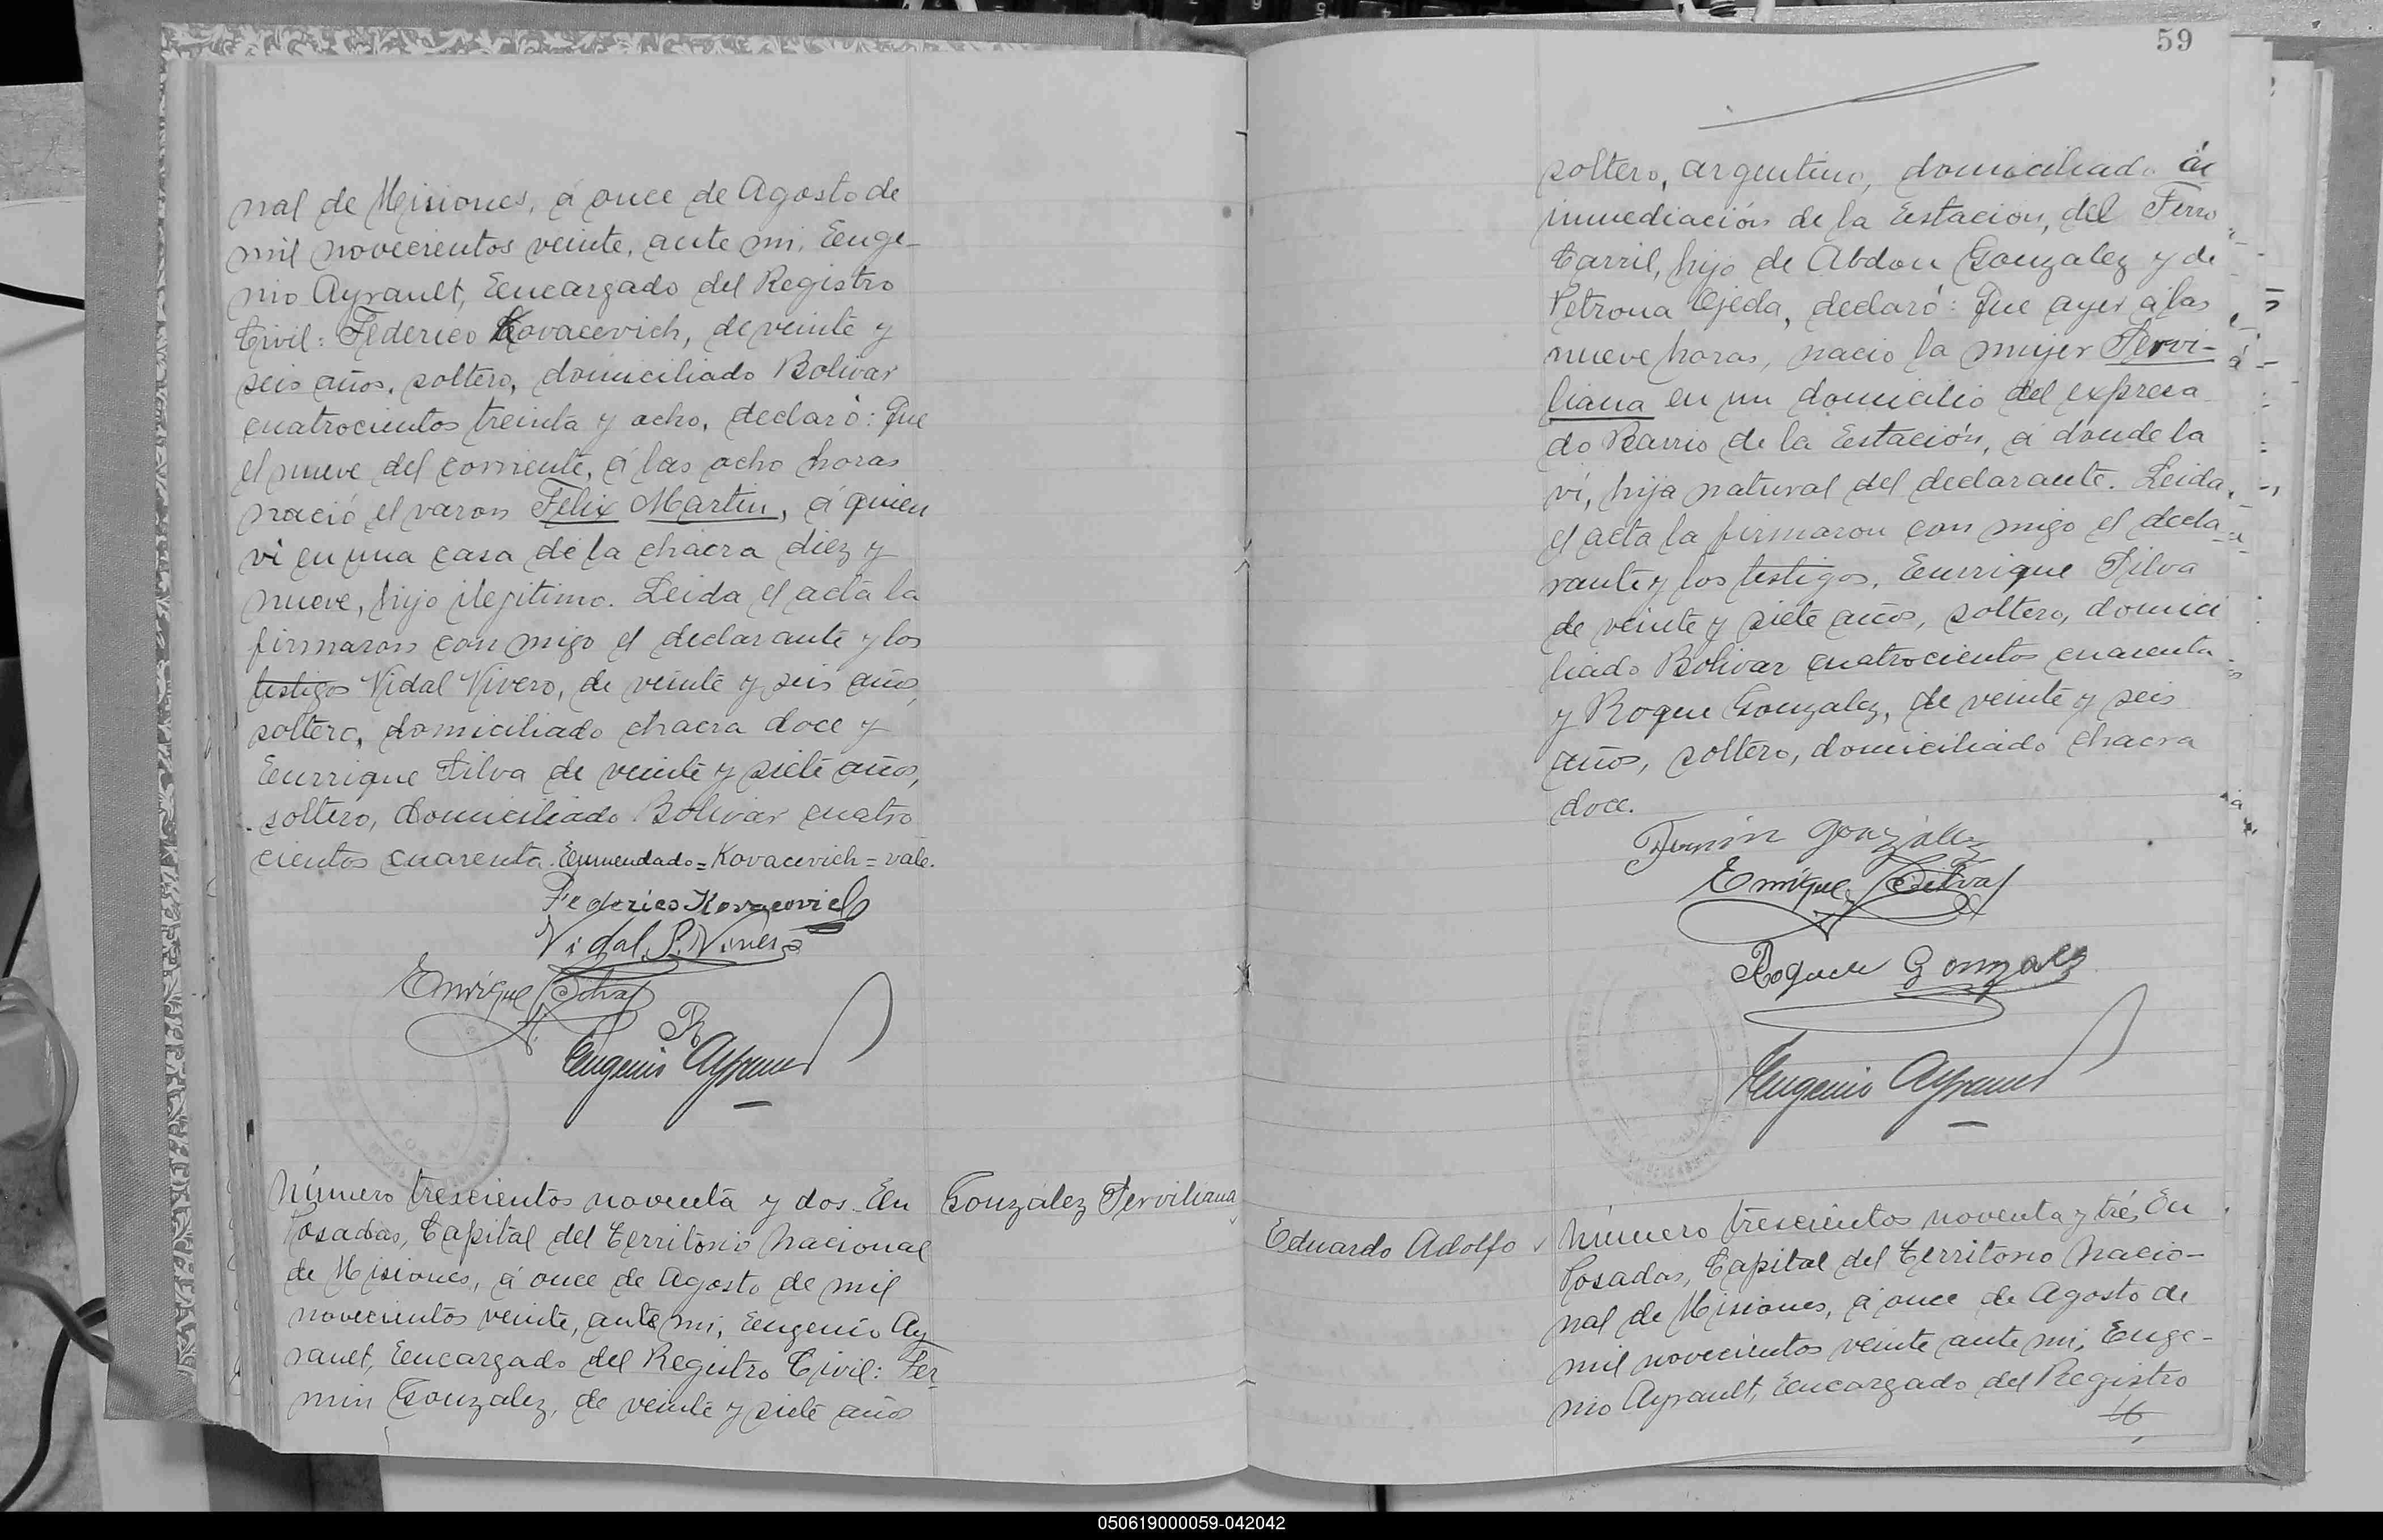 nal de Misiones, á once de Agosto de
mil novecientos veinte, ante mi, Euge-
nio Ayrault, Encargado del Registro
Civil: Federico Kovacevich, de veinte y
seis años, soltero, domiciliado Bolivar
cuatrocientos treinta y ocho, declaró: Que
el nueve del corriente, á las ocho horas
nació el varon Felix Martin, á quien
vi en una casa de la chacra diez y
nueve, hijo ilegitimo. Leida el acta la
firmaron con migo el declarante y los
testigos Vidal Vivero, de veinte y seis años,
soltero, domiciliado chacra doce y
Enrrique Silva de veinte y siete años,
soltero, domiciliado Bolivar cuatro
cientos cuarenta. Enmendado=Kovacevich=vale.
Federico Kovacevich
Vidal S. Vivero
Enrique Silva
Eugenio Ayrault
Número trescientos noventa y dos. En
Posadas, Capital del Territorio Nacional
de Misiones, á once de Agosto de mil
novecientos veinte, ante mi, Eugenio Ay
rault, Encargado del Registro Civil: Fer-
min Gonzalez, de veinte y siete años
Gonzalez Serviliana
59
soltero, argentino, domiciliado en
inmediación de la Estacion, del Ferro
Carril, hijo de Abdon Gonzalez y de
Petrona Ojeda, declaró: Que ayer á las
nueve horas, nacio la mujer Servi-
liana en un domicilio del expresa
do Barrio de la Estación, á donde la
ví, hija natural del declarante. Leida,
el acta la firmaron con migo el decla
rante y los testigos, Enrrique Silva
de veinte y siete años, soltero, domici
liado Bolivar cuatrocientos cuarenta
y Roque Gonzalez, de veinte y seis
años, soltero, domiciliado chacra
doce.
Fermin Gonzalez
Enrique Silva
Roque Gonzalez
Eugenio Ayrault
Eduardo Adolfo
Número trescientos noventa y tré, En
Posadas, Capital del Territorio Nacio-
nal de Misiones, á once de Agosto de
mil novecientos veinte ante mi, Euge-
nio Ayrault, Encargado del Registro
050619000059-042042